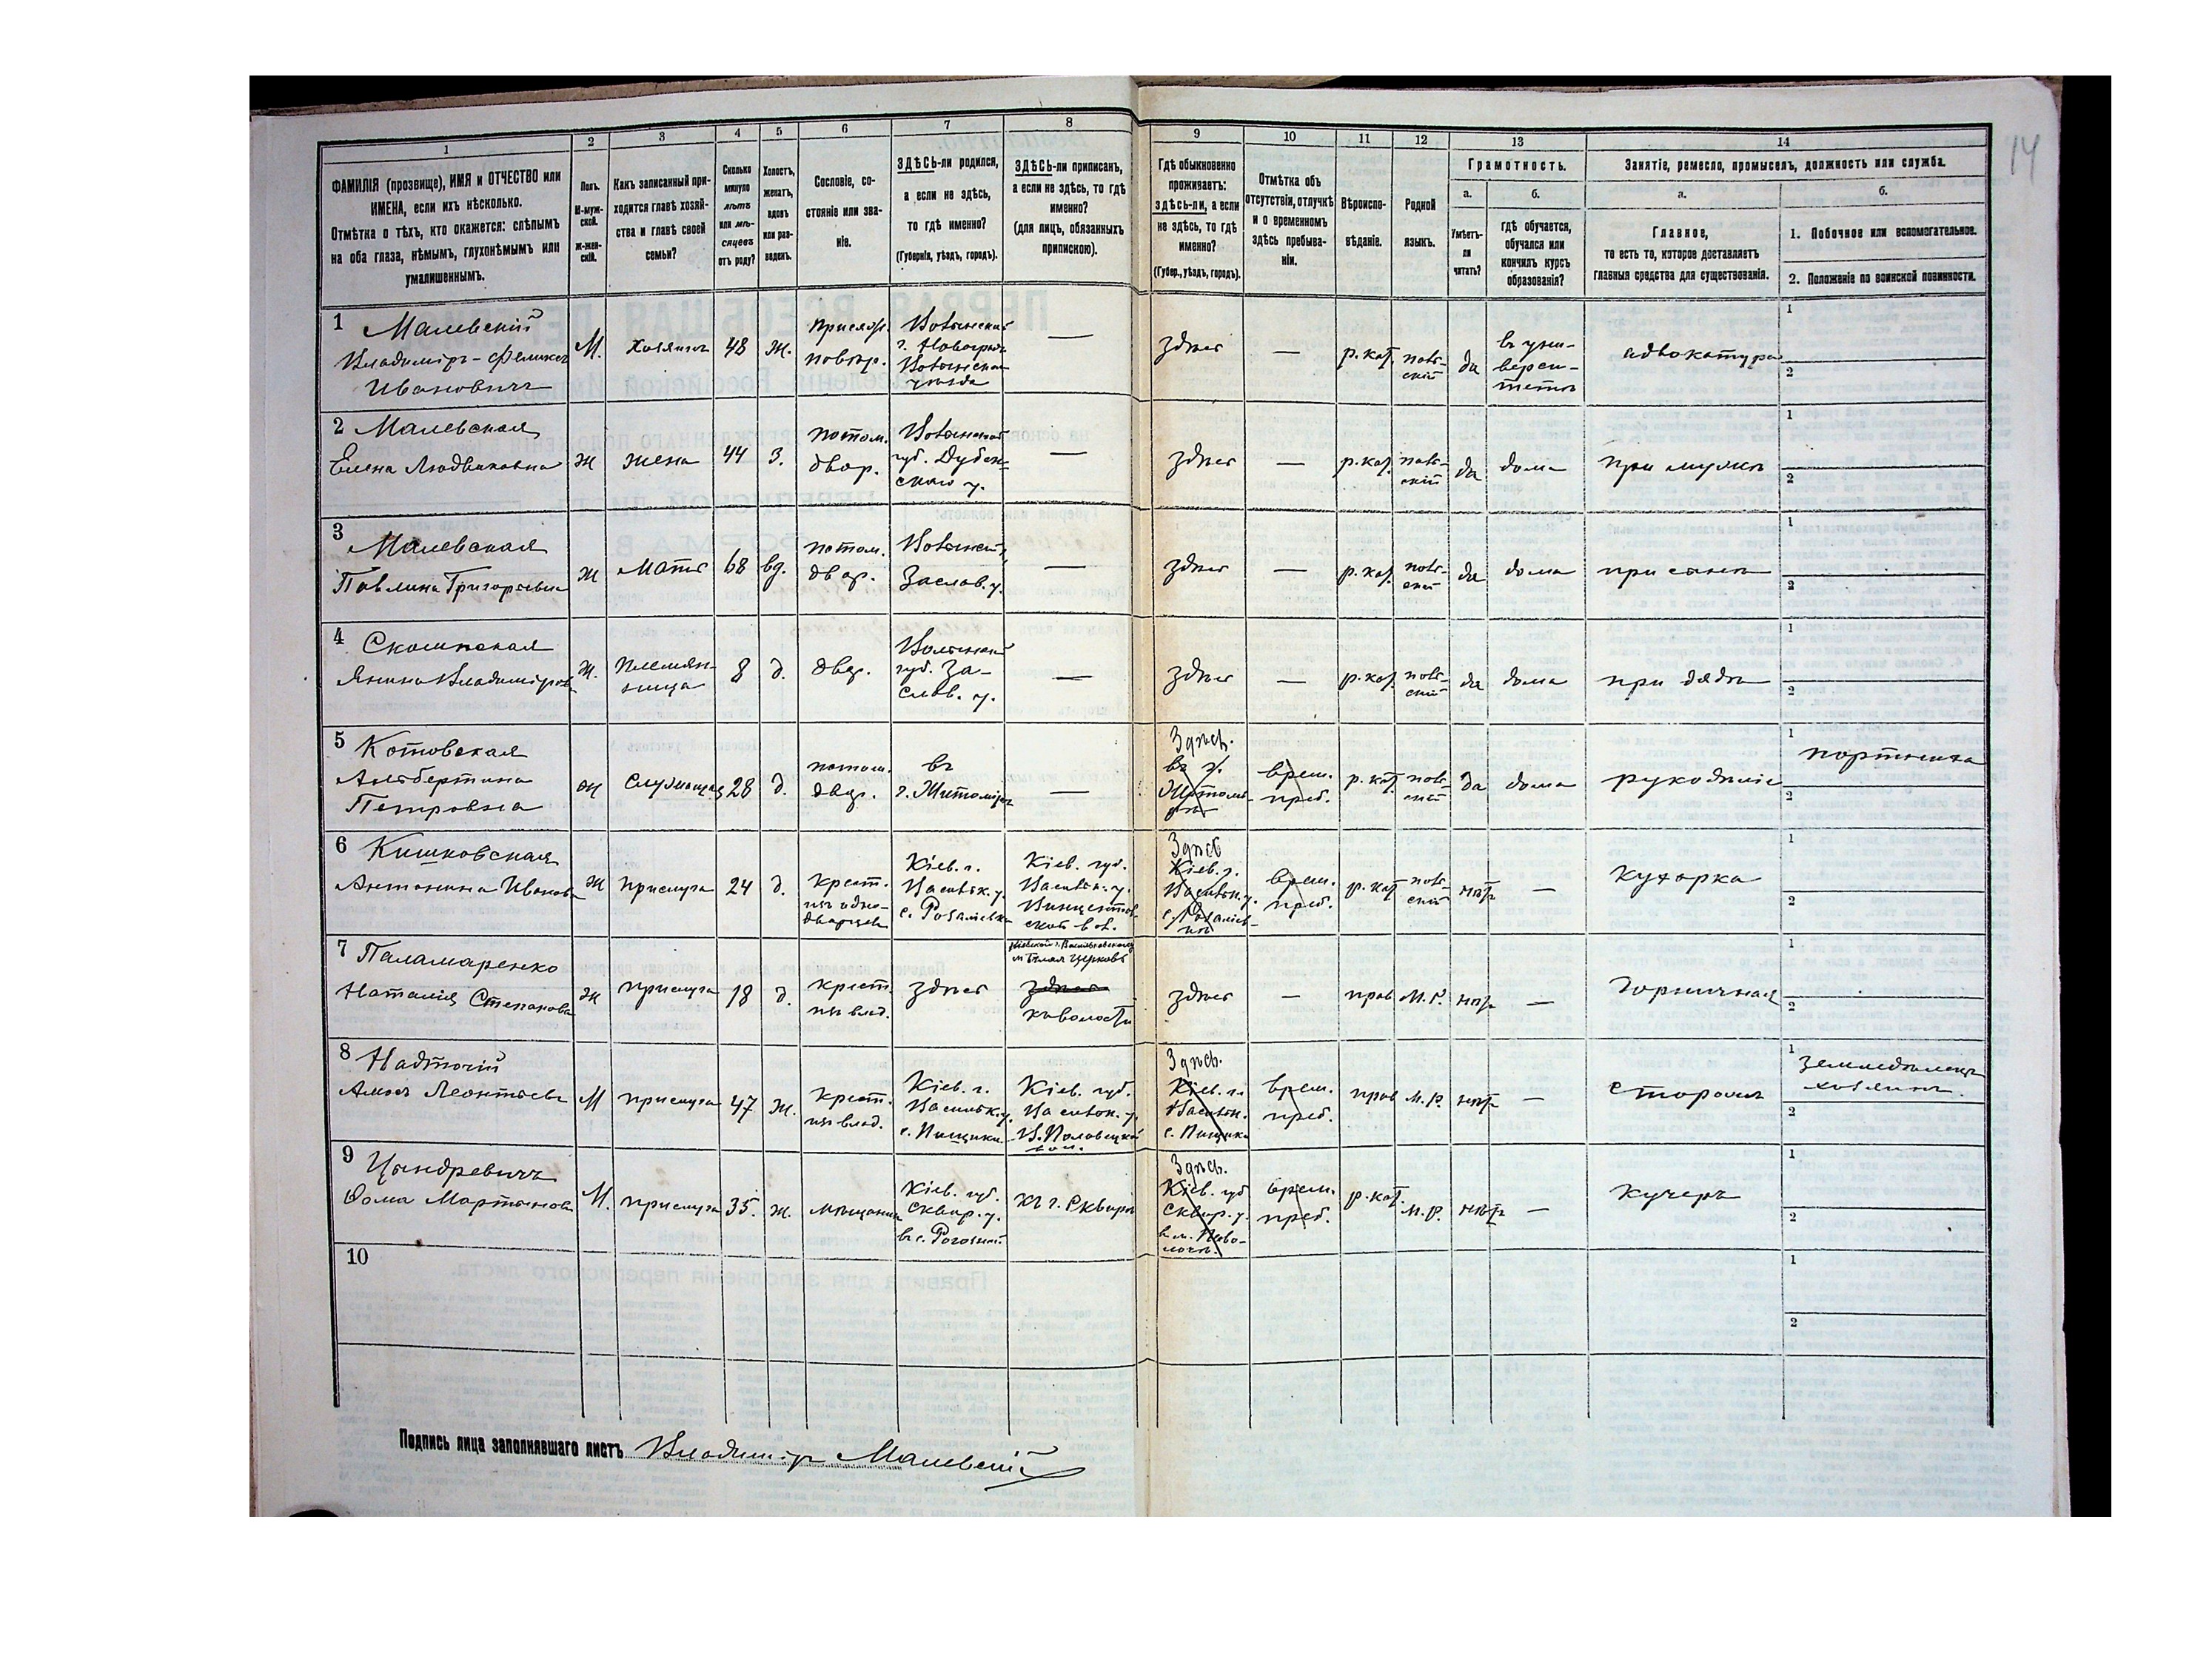 14
1
2
3
4
5
6
7
8
9
10
11
12
13
14
ФАМИЛІЯ (прозвище), ИМЯ и ОТЧЕСТВО или
ИМЕНА, если ихъ нѣсколько.
Отмѣтка о тѣхъ, кто окажется: слѣпымъ
на оба глаза, нѣмымъ, глухонѣмымъ или
умалишеннымъ.
Полъ.
М-муж-
ской.
Ж-жен-
скій.
Какъ записанный при-
ходится главѣ хозяй-
ства и главѣ своей
семьи?
Сколько
минуло
лѣтъ
или мѣ-
сяцевъ
отъ роду?
Холостъ,
женатъ,
вдовъ
или раз-
веденъ.
Сословіе, со-
стояніе или зва-
ніе.
ЗДѢСЬ-ли родился,
а если не здѣсь,
то гдѣ именно?
(Губернія, уѣздъ, городъ).
ЗДѢСЬ-ли приписанъ,
а если не здѣсь, то гдѣ
именно?
(для лицъ, обязанныхъ
припискою).
Гдѣ обыкновенно
проживаетъ:
здѣсь-ли, а если
не здѣсь, то гдѣ
именно?
(Губер., уѣздъ, городъ).
Отмѣтка объ
отсутствіи, отлучкѣ
и о временномъ
здѣсь пребыва-
ніи.
Вѣроиспо-
вѣданіе.
Родной
языкъ.
Грамотность.
а.
Умѣетъ-
ли
читать?
б.
гдѣ обучается,
обучался или
кончилъ курсъ
образованія?
Занятіе, ремесло, промыселъ, должность или служба.
а.
Главное,
то есть то, которое доставляетъ
главныя средства для существованія.
б.
1. Побочное или вспомогательное.
2. Положеніе по воинской повинности.
1 Малевскій
Владиміръ-Феликсъ
Ивановичъ
М.
Хозяинъ
48
ж.
присяж.
повѣр.
Волынской
г. Новоградъ
Волынскаго
уѣзда
—
здѣсь
—
р. кат.
поль-
скій
да
въ уни-
верси-
тетѣ
адвокатура
1
2
2 Малевская
Елена Людвиковна
ж
жена
44
з.
потом.
двор.
Волынской
губ. Дубен-
скаго у.
—
здѣсь
—
р. кат.
поль-
скій
да
дома
при мужѣ
1
2
3
Малевская
Павлина Григорьевна
ж
мать
68
вд.
потом.
двор.
Волынск.
Заслав. у.
—
здѣсь
—
р. кат.
поль-
скій
да
дома
при сынѣ
1
2
4
Янина Владимірова
ж.
племян-
ница
8
д.
двор.
Волынской
губ. За-
слав. у.
—
здѣсь
—
р. кат.
поль-
скій
да
дома
при дядѣ
1
2
5 Котовская
Альбертина
Петровна
ж
Служащая
28
д.
потом.
двор.
въ
г. Житомірѣ
—
Здѣсь.
въ г.
Житомі-
рѣ
врем.
преб.
р. кат.
поль-
скій
да
дома
рукодѣліе
1 портниха
2
6 Кишковская
Антонина Иванова
ж
прислуга
24
д.
крест.
изъ одно-
дворцевъ
Кіев. г.
Васильк. у.
Кіев. губ.
Васильк. у.
Винцентов-
ской вол.
Здѣсь
Кіев. г.
Васильк. у.
врем.
преб.
р. кат.
поль-
скій
нѣтъ
—
кухарка
1
2
7 Паламаренко
Наталія Степанова
ж
прислуга
18
д.
крест.
изъ влад.
здѣсь
Кіевской г. Васильковскаго у
м Бѣлая Церковь
здѣсь
къ волости
здѣсь
—
прав
М. Р.
нѣтъ
—
Горничная
1
2
8 Надточій
Амосъ Леонтьевъ
М
прислуга
47
ж.
крест.
изъ влад.
Кіев. г.
Васильк. у.
с. Пищики
Кіев. губ.
Васильк. у.
В. Половецкой
вол.
Здѣсь.
Кіев. г.
Васильк.
с. Пищики
врем.
преб.
прав
М. Р.
нѣтъ
—
сторожъ
1 земледѣлецъ
хозяинъ.
2
9
Ѳома Мартыновъ
М.
прислуга
35.
ж.
мѣщанинъ
Кіев. губ.
Сквир. у.
къ г. Сквирѣ
Здѣсь.
Кіев. губ
Сквир. у.
в м. Паво-
лочь.
врем.
преб.
р. кат.
М. Р.
нѣтъ
—
кучеръ
1
2
10
1
2
Подпись лица заполнявшаго листъ Владиміръ Малевскій